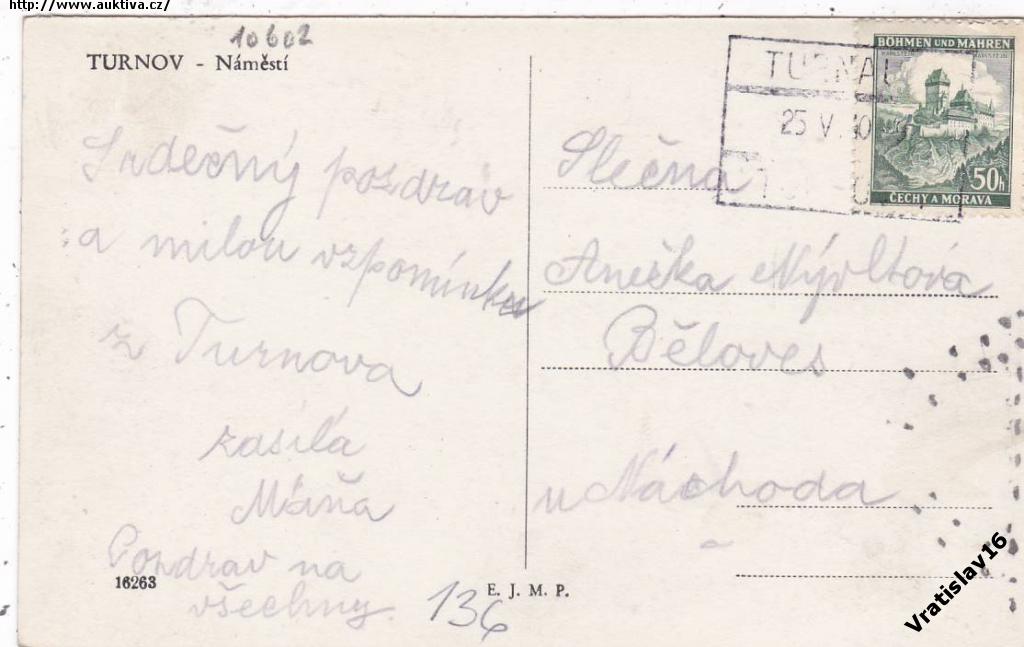 http://www.auktiva.cz/
10602
TURNOV - Náměstí
Srdečný pozdrav
a milou vzpomínku
z Turnova
zasílá
Máňa
Pozdrav na
všechny.
16263
136
E. J. M. P.
TURNAU
25 V. 40
BÖHMEN UND MÄHREN
50h
ČECHY A MORAVA
Slečna
Anežka Nývltová
Běloves
u Náchoda
Vratislav16